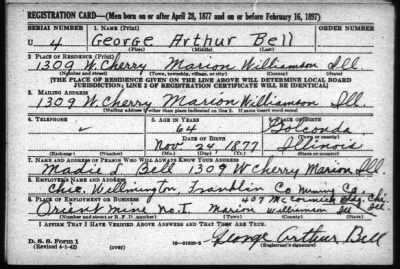 REGISTRATION CARD—(Men born on or after April 28, 1877 and on or before February 16, 1897)
SERIAL NUMBER 1. NAME (Print) ORDER NUMBER
U 4 George Arthur Bell
(First) (Middle) (Last)
2. PLACE OF RESIDENCE (Print)
1309 W. Cherry Marion Williamson Ill.
(Number and street) (Town, township, village, or city) (County) (State)
[THE PLACE OF RESIDENCE GIVEN ON THE LINE ABOVE WILL DETERMINE LOCAL BOARD
JURISDICTION; LINE 2 OF REGISTRATION CERTIFICATE WILL BE IDENTICAL]
3. MAILING ADDRESS
1309 W. Cherry Marion Williamson Ill.
[Mailing address if other than place indicated on line 2. If same insert word same]
4. TELEPHONE 5. AGE IN YEARS 6. PLACE OF BIRTH
64 Golconda
DATE OF BIRTH (Town or county)
Nov 24 1877 Illinois
(Exchange) (Number) (Mo.) (Day) (Yr.) (State or country)
7. NAME AND ADDRESS OF PERSON WHO WILL ALWAYS KNOW YOUR ADDRESS
Bell 1309 W Cherry Marion Ill.
8. EMPLOYER'S NAME AND ADDRESS
Chic. Willmington, Franklin Co Mining Co.
9. PLACE OF EMPLOYMENT OR BUSINESS 407 McCormick Bldg. Chi.
Orient Mine No. 1. Marion Williamson Ill
(Number and street or R. F. D. number) (Town) (County) (State)
I AFFIRM THAT I HAVE VERIFIED ABOVE ANSWERS AND THAT THEY ARE TRUE.
D. S. S. Form 1
(Revised 4-1-42) (over) George Arthur Bell
(Registrant's signature)